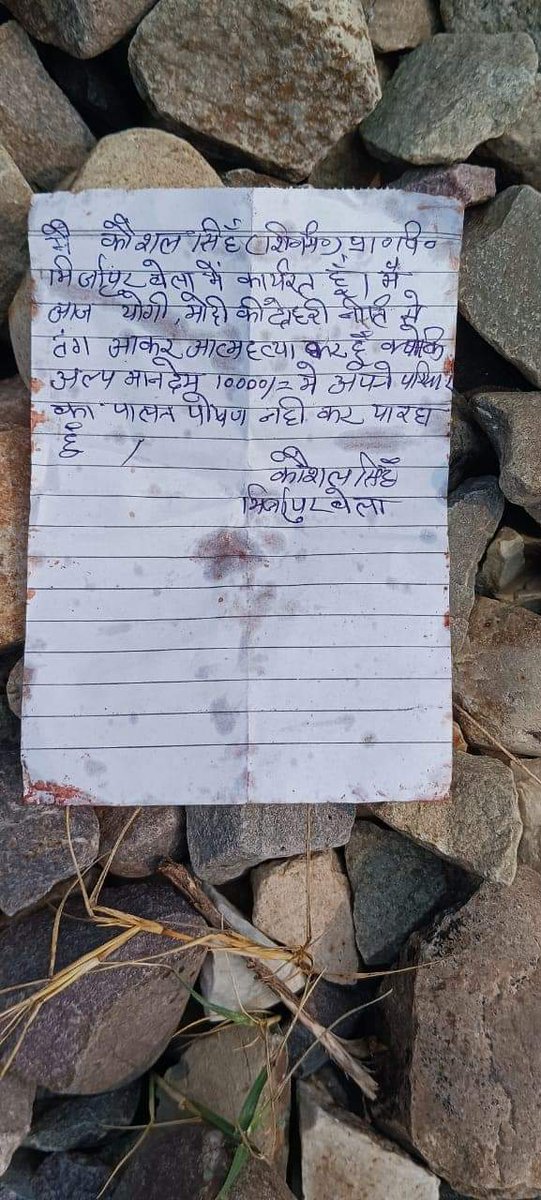 मै कौशल सिहँ (शि०मि०) प्रा०वि०
मिर्जापुर वेला मै कार्यरत हूँ। मै
आज योगी, मोदी की दोहरी नीति से
तंग आकर आत्महत्या कर हूँ क्योकि
अल्प मानदेय 10000/= मे अपने परिवार
का पालन पोषण नही कर पा रहा
हूँ ।
कौशल सिहँ
मिर्जापुर वेला